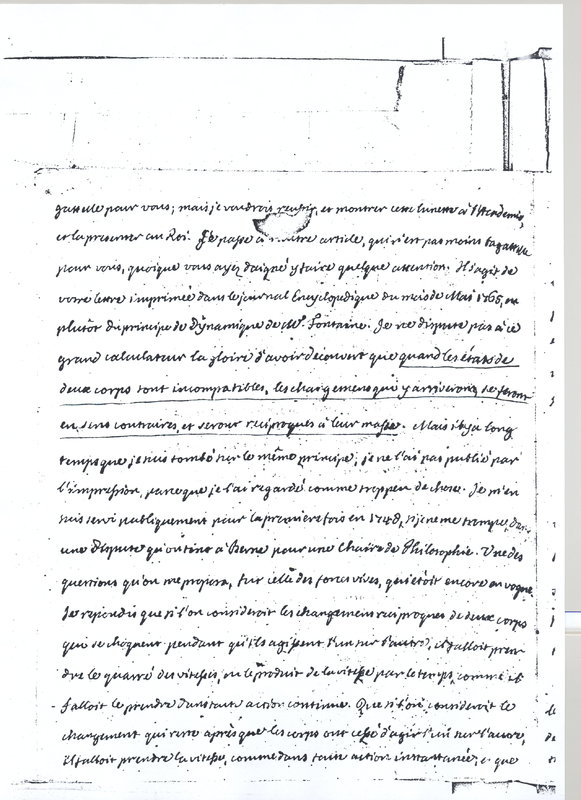 gatelle pour vous; mais je voudrois reussir, et montrer cette lunette à l'Academie,
et la presenter au Roi. Je passe à l'autre article, qui n'est pas moins bagatelle
pour vous, quoique vous ayez daigné y faire quelque attention. Il s'agit de
votre lettre imprimée dans le journal Encyclopedique du mois de Mai 1765, ou
plutôt du principe de Dynamique de Mr. Fontaine. Je ne dispute pas à ce
grand calculateur la gloire d'avoir decouvert que quand les états de
deux corps sont incompatibles, les changemens qui y arriveront se feront
en sens contraires, et seront reciproques à leur masse. Mais il y a long
temps que je suis tombé sur le même principe; je ne l'ai pas publié par
l'impression, parceque je l'ai regardé comme trop peu de chose. Je m'en
suis servi publiquement pour la premiere fois en 1748, si je ne me trompe, dans
une Dispute qu'on tint à Berne pour une Chaire de Philosophie. Une des
questions qu'on me proposa, fut celle des forces vives, qui étoit encore en vogue.
Je repondis que si l'on consideroit les changemens reciproques de deux corps
qui se chôquent pendant qu'ils agissent l'un sur l'autre, il falloit pren
dre le quarré des vitesses, ou le produit de la vitesse par le temps, comme il
falloit le prendre dans toute action continue. Que si l'on consideroit le
changement qui reste après que les corps ont cessé d'agir l'un sur l'autre,
il falloit prendre la vitesse, comme dans toute action instantanée; et que